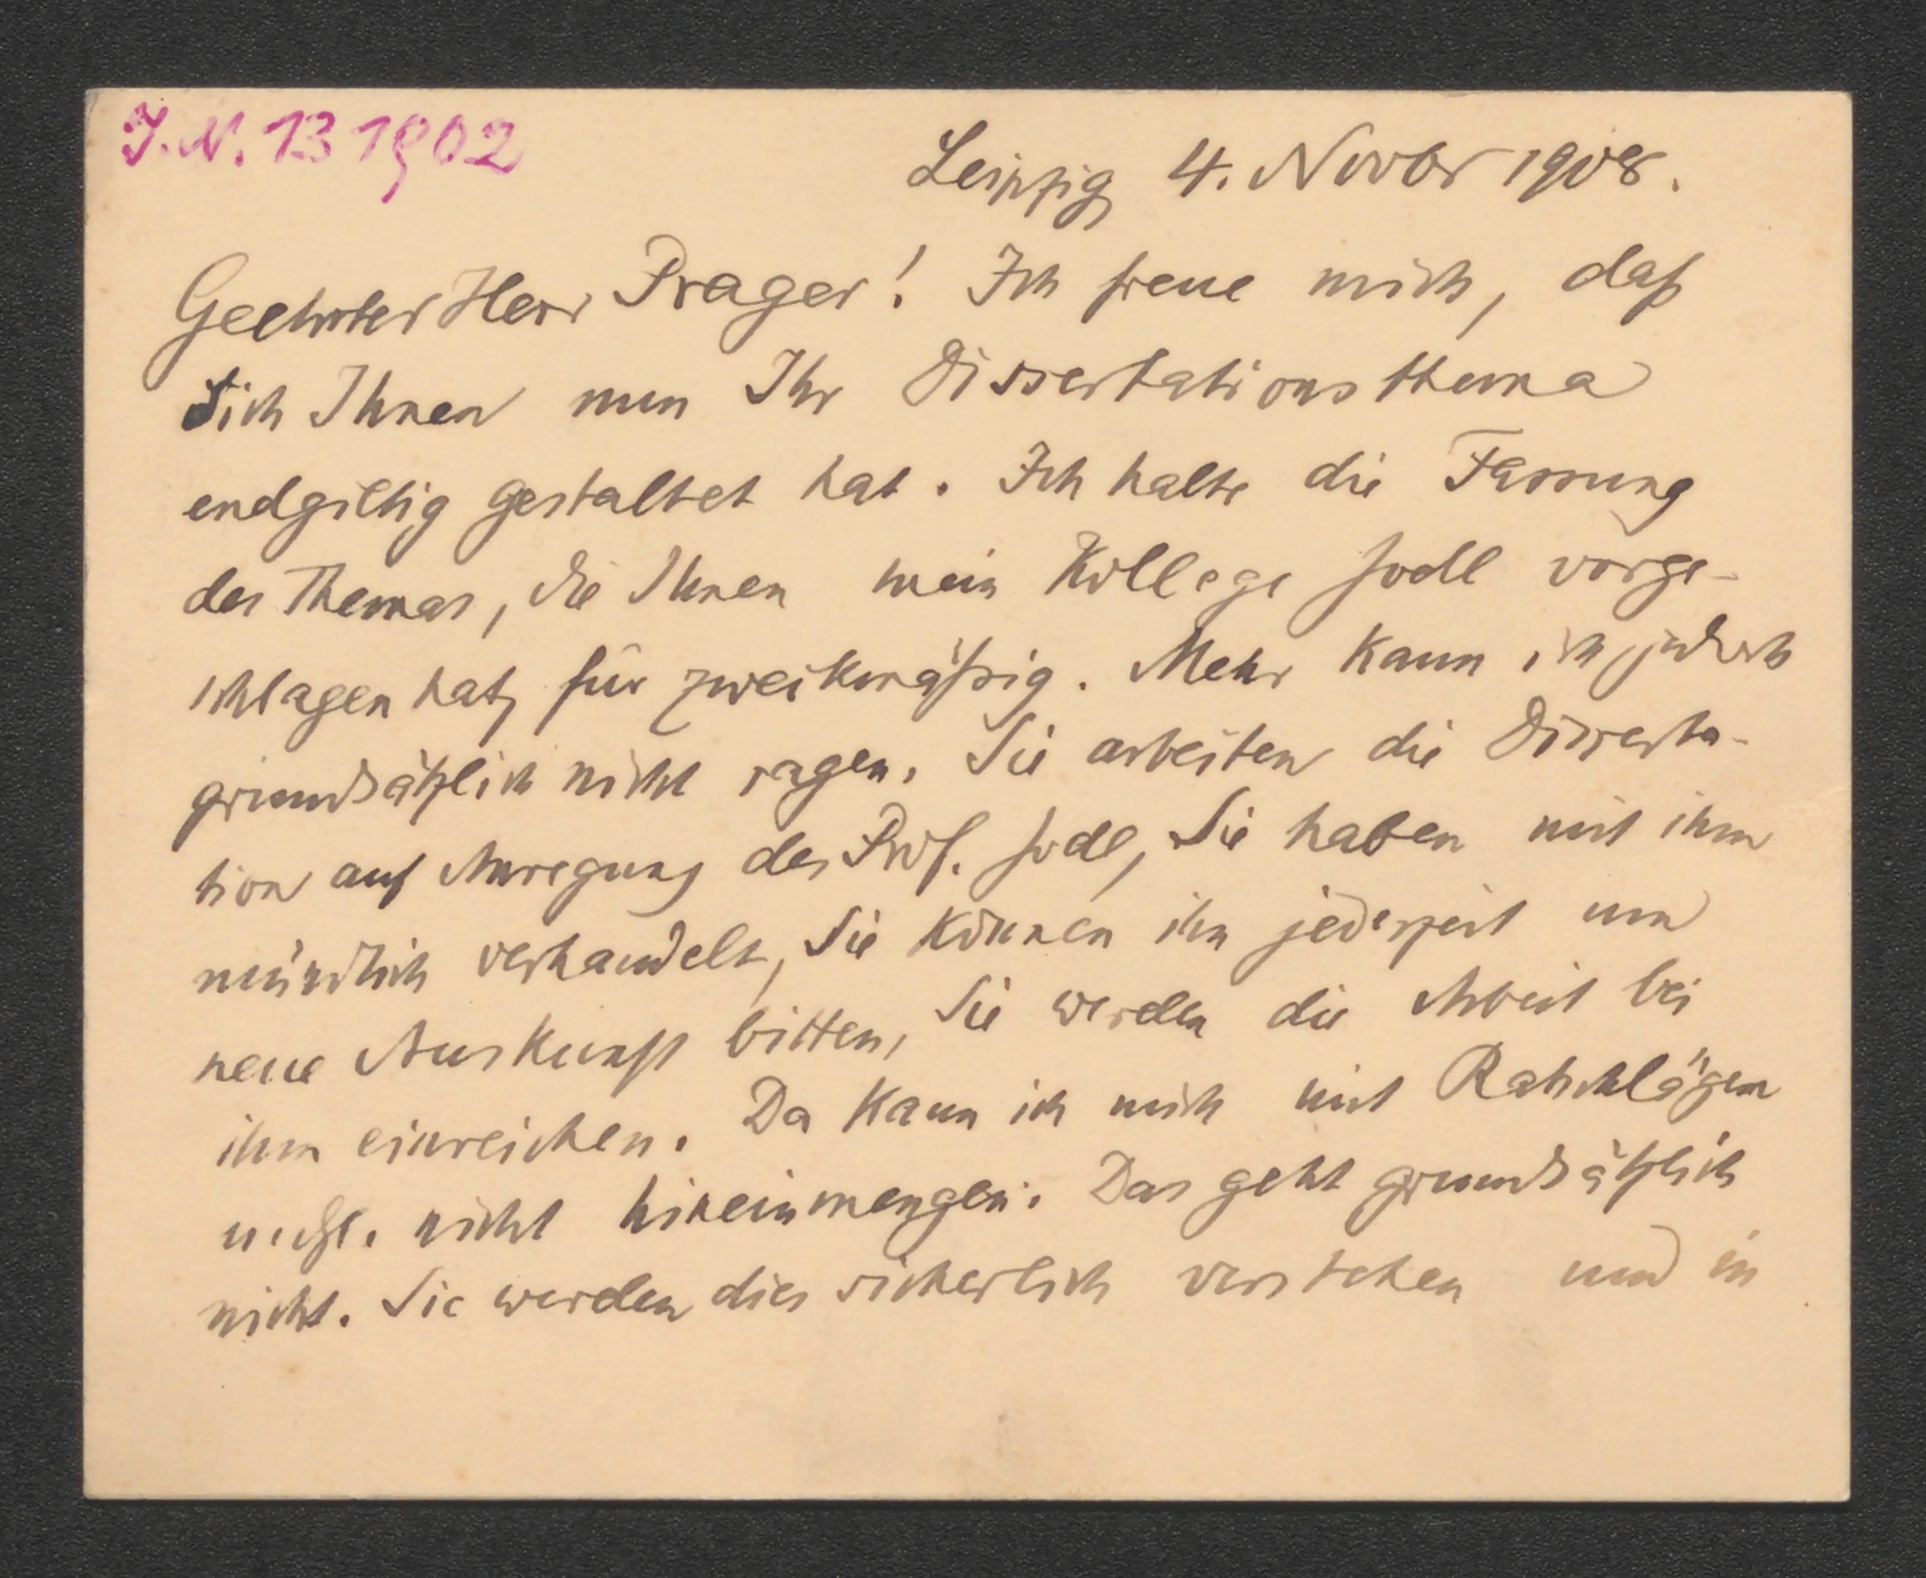 J.N. 131902
Leipzig 4. Novbr 1908.
Geehrter Herr Prager! Ich freue mich, daß
sich Ihnen nun Ihr Dissertationsthema
endgiltig gestaltet hat. Ich halte die Fassung
des Themas, die Ihnen mein Kollege Jodl vorge-
schlagen hat, für zweckmäßig. Mehr kann ich jedoch
grundsätzlich nicht sagen. Sie arbeiten die Disserta-
tion auf Anregung des Prof. Jodl, Sie haben mit ihm
mündlich verhandelt, Sie können ihn jederzeit um
neue Auskunft bitten, Sie werden die Arbeit bei
ihm einreichen. Da kann ich mich mit Ratschlägen
nicht hineinmengen. Das geht grundsätzlich
nicht. Sie werden dies sicherlich verstehen und in